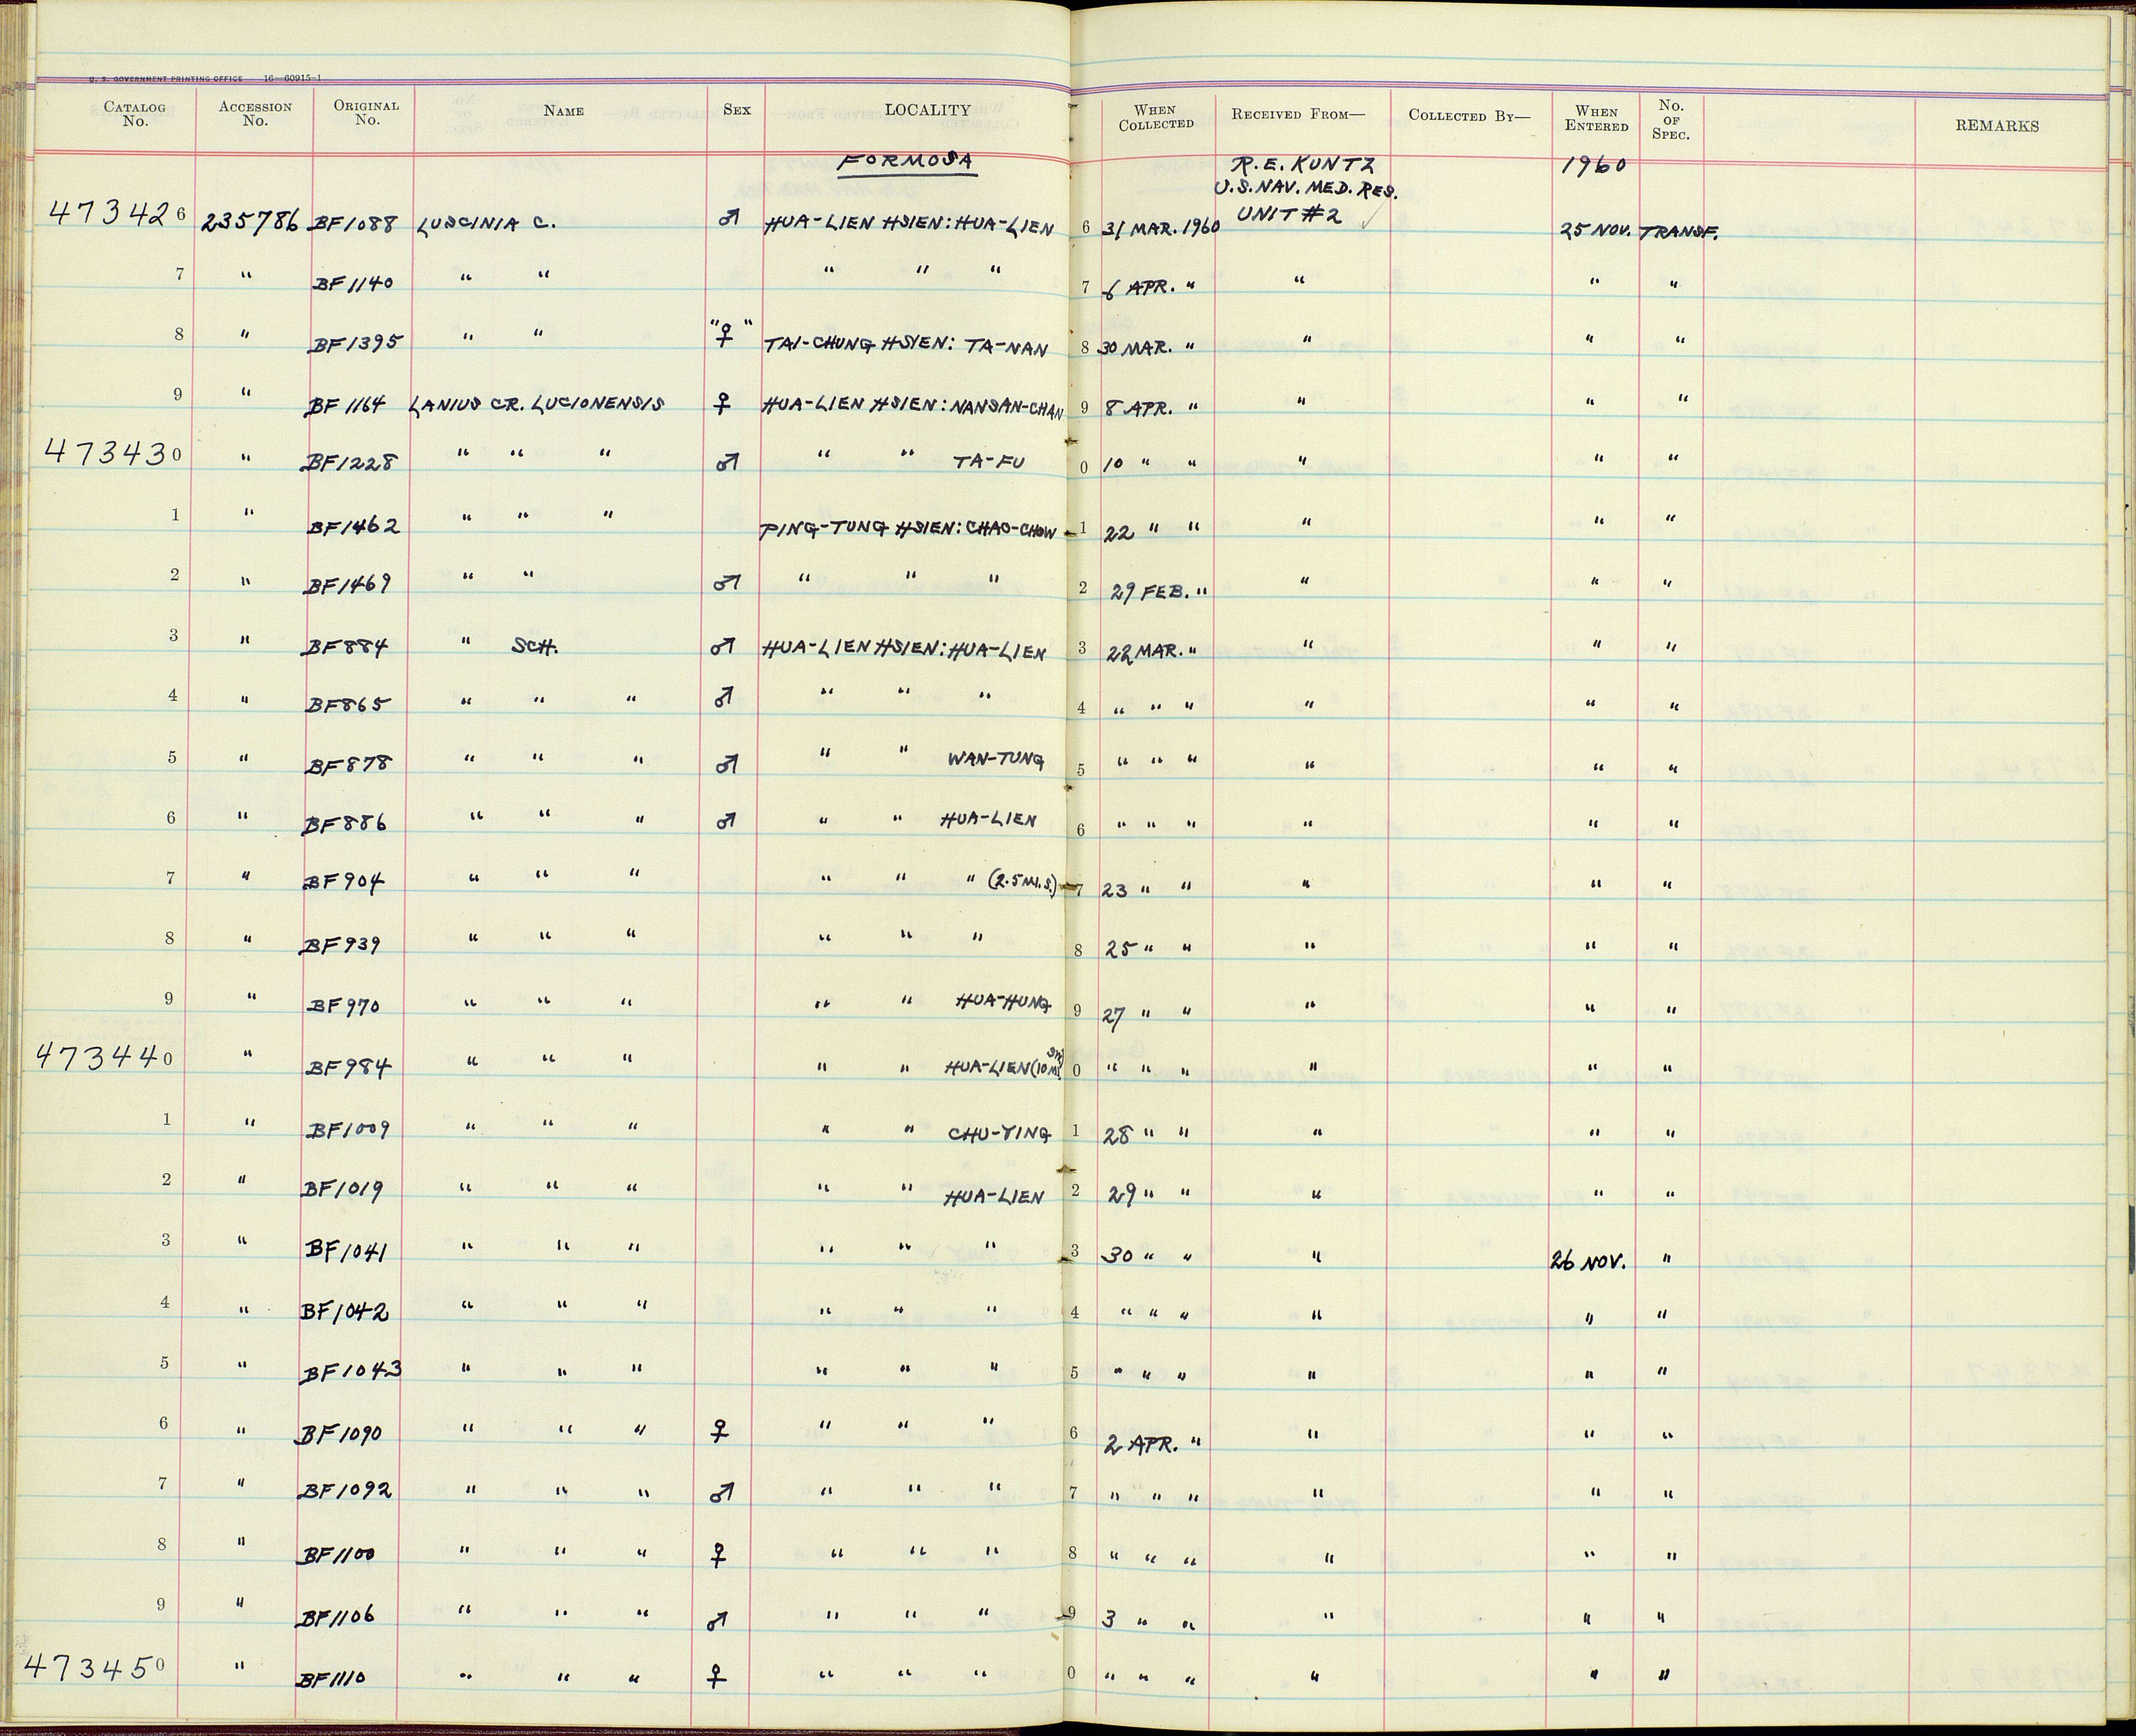 U. S. GOVERNMENT PRINTING OFFICE 16—60915-1
CATALOG No. ACCESSION No. ORIGINAL No. NAME SEX LOCALITY WHEN COLLECTED RECEIVED FROM— COLLECTED BY— WHEN ENTERED No. OF SPEC. REMARKS
FORMOSA R.E. KUNTZ 1960
U.S. NAV. MED. RES.
UNIT #2
473426 235786 BF1088 LUSCINIA C. ♂ HUA-LIEN HSIEN: HUA-LIEN 6 31 MAR. 1960 25 NOV. TRANSF.
7 " BF1140 " " " " " 7 6 APR. " " " "
8 " BF1395 " " "♀" TAI-CHUNG HSIEN: TA-NAN 8 30 MAR. " " " "
9 " BF1164 LANIUS CR. LUCIONENSIS ♀ HUA-LIEN HSIEN: NANSAN-CHAN 9 8 APR. " " " "
473430 " BF1228 " " " ♂ " " TA-FU 0 10 " " " " "
1 " BF1462 " " " PING-TUNG HSIEN: CHAO-CHOW 1 22 " " " " "
2 " BF1469 " " ♂ " " " 2 29 FEB. " " " "
3 " BF884 " SCH. ♂ HUA-LIEN HSIEN: HUA-LIEN 3 22 MAR. " " " "
4 " BF865 " " " ♂ " " " 4 " " " " " "
5 " BF878 " " " ♂ " " WAN-TUNG 5 " " " " " "
6 " BF886 " " " ♂ " " HUA-LIEN 6 " " " " " "
7 " BF904 " " " " " " (2.5 MI. S.) 7 23 " " " " "
8 " BF939 " " " " " " 8 25 " " " " "
9 " BF970 " " " " " HUA-HUNG 9 27 " " " " "
473440 " BF984 " " " " " HUA-LIEN (10 MI. 0 " " " " " "
1 " BF1009 " " " " " CHU-YING 1 28 " " " " "
2 " BF1019 " " " " " HUA-LIEN 2 29 " " " " "
3 " BF1041 " " " " " " 3 30 " " " 26 NOV. "
4 " BF1042 " " " " " " 4 " " " " " "
5 " BF1043 " " " " " " 5 " " " " " "
6 " BF1090 " " " ♀ " " " 6 2 APR. " " " "
7 " BF1092 " " " ♂ " " " 7 " " " " " "
8 " BF1100 " " " ♀ " " " 8 " " " " " "
9 " BF1106 " " " ♂ " " " 9 3 " " " " "
473450 " BF1110 " " " ♀ " " " 0 " " " " " "